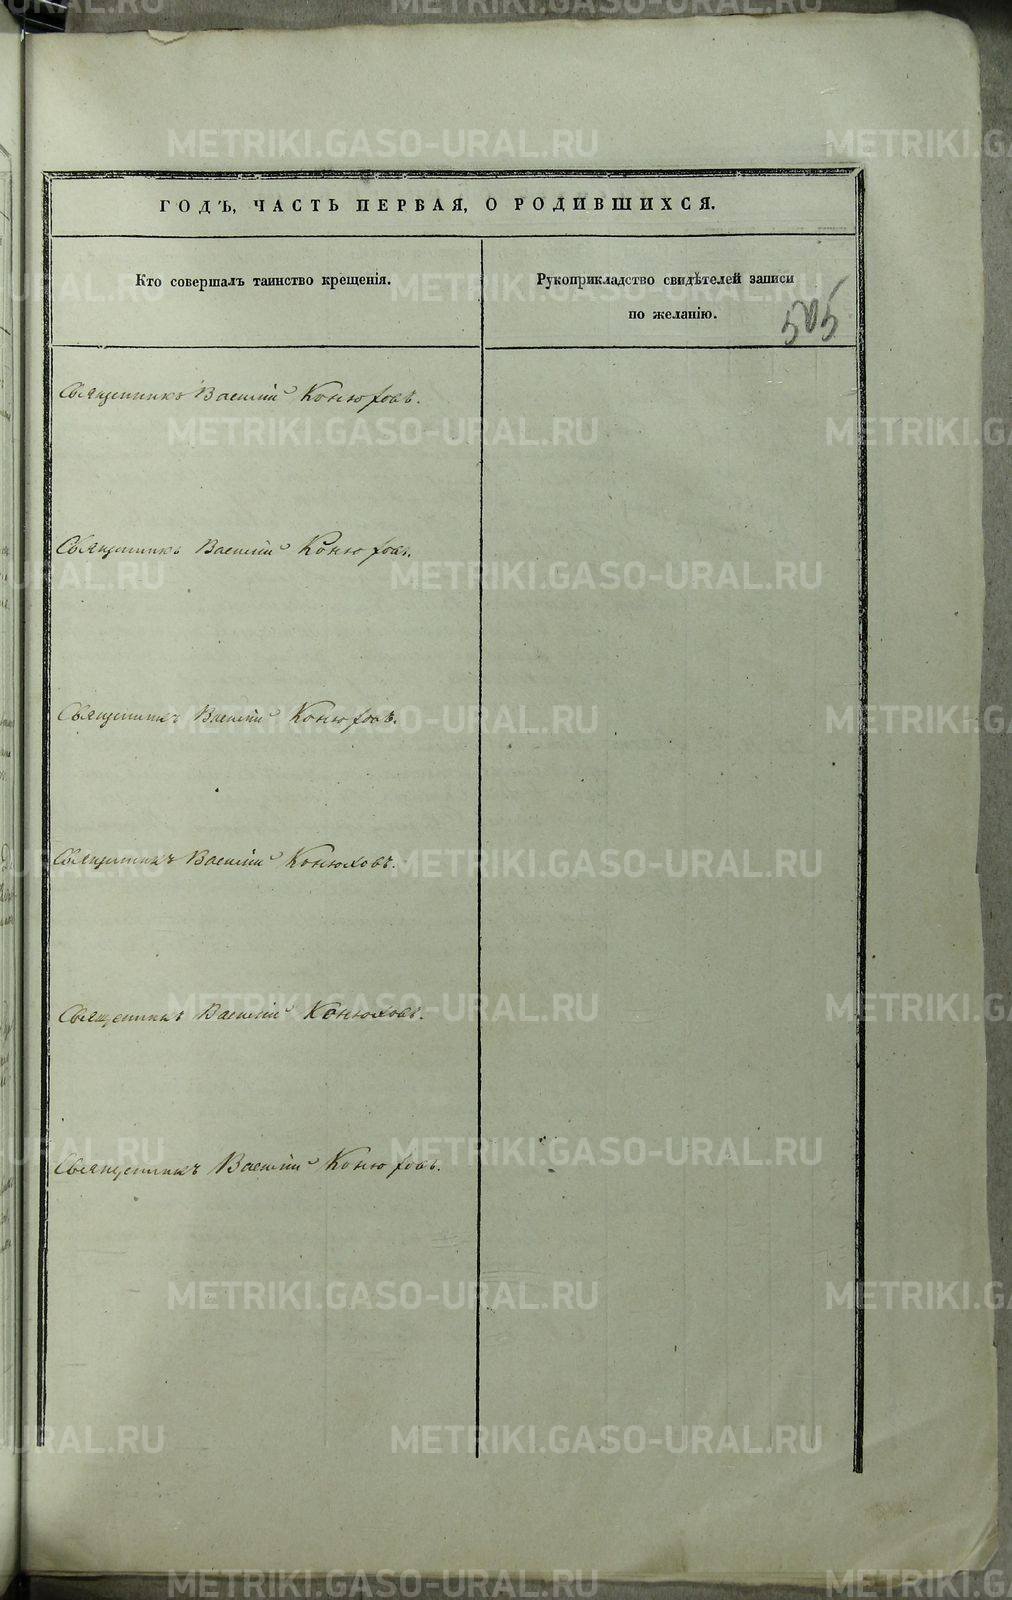 ГОДЪ, ЧАСТЬ ПЕРВАЯ, О РОДИВШИХСЯ.
Кто совершалъ таинство крещенія.
Рукоприкладство свидѣтелей записи
по желанію.
505
Священникъ Василій Конюховъ.
Священникъ Василій Конюховъ.
Священникъ Василій Конюховъ.
Священникъ Василій Конюховъ.
Священникъ Василій Конюховъ.
Священникъ Василій Конюховъ.
METRIKI.GASO-URAL.RU